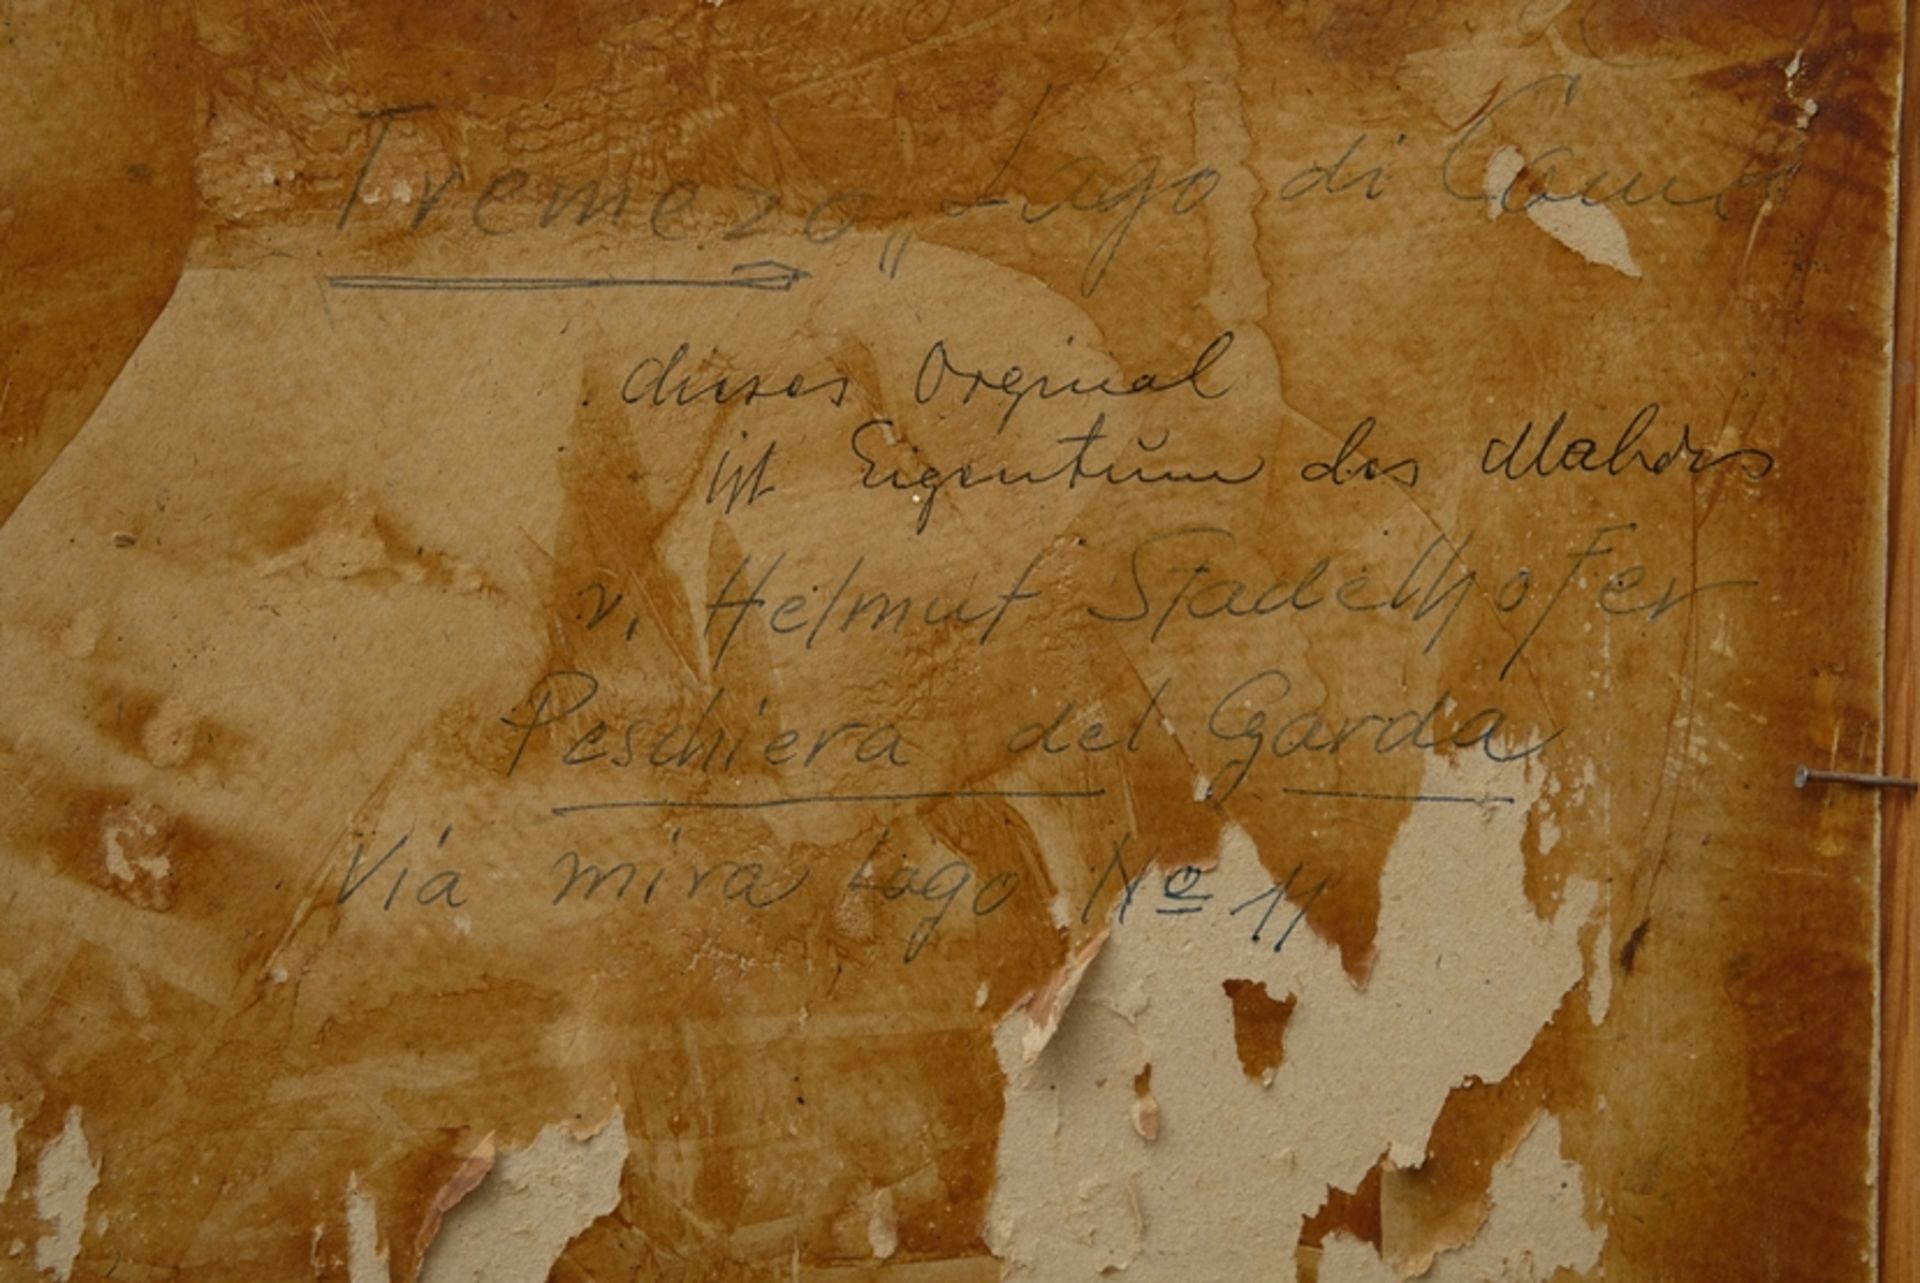 Tremezo, Lago di Como
dieses Orginal
ist Eigentum des Mahlers
v. Helmut Stadelhofer
Peschiera del Garda
Via mira Lago No 11